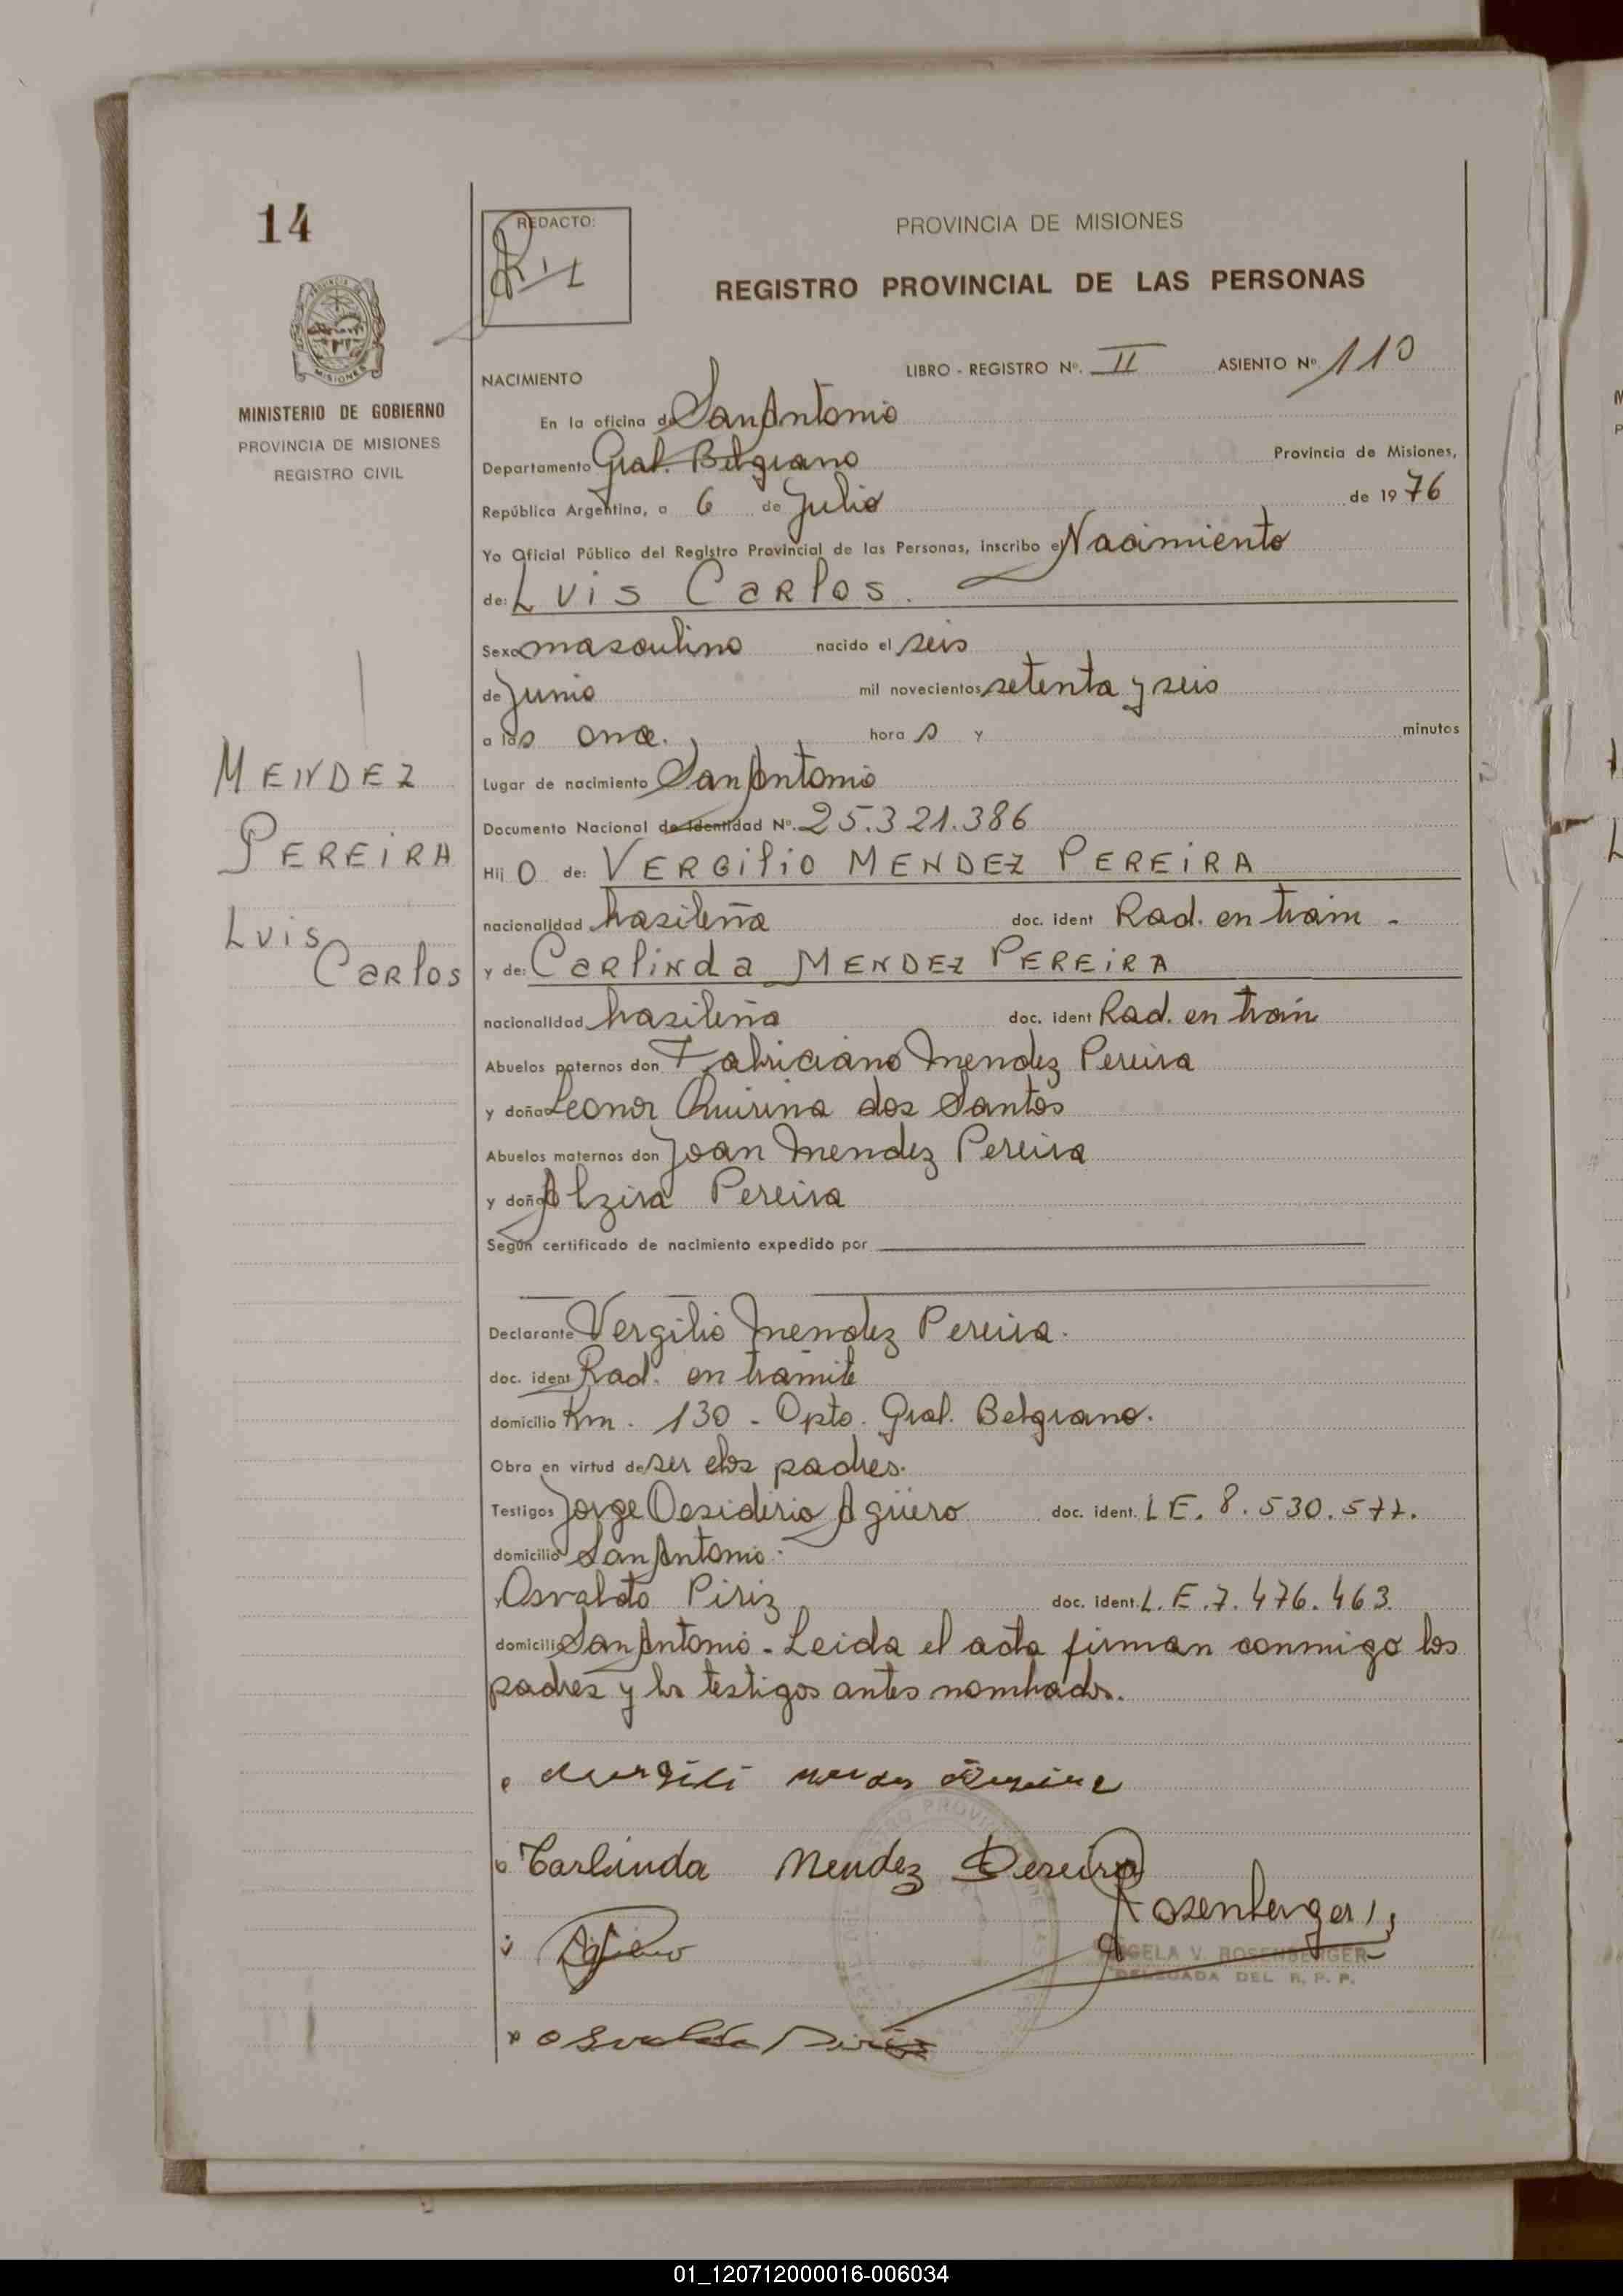 14
REDACTO:
PROVINCIA DE MISIONES
REGISTRO PROVINCIAL DE LAS PERSONAS
MISIONES
MINISTERIO DE GOBIERNO
PROVINCIA DE MISIONES
REGISTRO CIVIL
NACIMIENTO LIBRO - REGISTRO Nº. II ASIENTO Nº. 110
En la oficina de San Antonio
Departamento Gral. Belgrano Provincia de Misiones,
República Argentina, a 6 de Julio de 1976
Yo Oficial Público del Registro Provincial de las Personas, inscribo el Nacimiento
de: Luis Carlos.
Sexo masculino nacido el seis
de Junio mil novecientos setenta y seis
a las once. hora s y minutos
Lugar de nacimiento San Antonio
Documento Nacional de Identidad Nº. 25.321.386
Hij O de: VERGILIO MENDEZ PEREIRA
nacionalidad brasileña doc. ident Rad. en trám -
y de: Carlinda MENDEZ PEREIRA
nacionalidad brasileña doc. ident Rad. en trám
Abuelos paternos don Fabriciano Mendez Pereira
y doña Leonor Quirina dos Santos
Abuelos maternos don Joan Mendez Pereira
y doña Alzira Pereira
Según certificado de nacimiento expedido por
Declarante Vergilio Mendez Pereira.
doc. ident Rad. en trámite
domicilio Km. 130 - Dpto. Gral. Belgrano.
Obra en virtud de ser los padres.
Testigos Jorge Desiderio Agüero doc. ident. LE. 8.530.577.
domicilio San Antonio.
y Osvaldo Piriz doc. ident. L.E. 7.476.463.
domicilio San Antonio - Leida el acta firman conmigo los
padres y los testigos antes nombrados.
MENDEZ
PEREIRA
Luis
Carlos
Carlinda Mendez Pereira
Rosenberger
ANGELA V. ROSENBERGER
DELEGADA DEL R. P. P.
Osvaldo Piriz
01_120712000016-006034